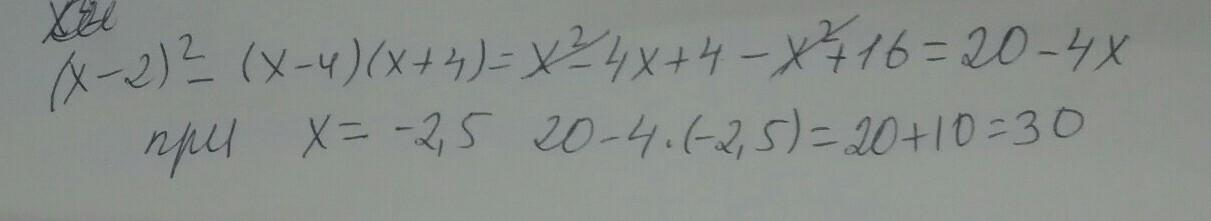 (x-2)² - (x-4)(x+4) = x² - 4x + 4 - x² + 16 = 20 - 4x
при x = -2,5 20 - 4·(-2,5) = 20 + 10 = 30